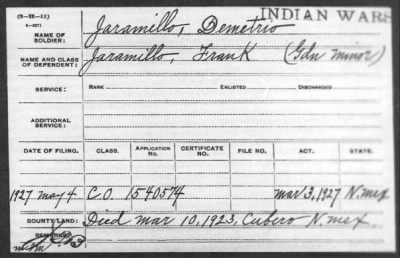 (5-SS-11)
INDIAN WARS
NAME OF SOLDIER: Jaramillo, Demetrio
NAME AND CLASS OF DEPENDENT: Jaramillo, Frank (Gdn minor)
SERVICE: RANK ENLISTED DISCHARGED
ADDITIONAL SERVICE:
DATE OF FILING. CLASS. APPLICATION NO. CERTIFICATE NO. FILE NO. ACT. STATE.
1927 may 4 C.O. 1540574 mar 3, 1927 N. mex
BOUNTY LAND: Died mar 10, 1923, Cubero N. mex.
REMARKS: